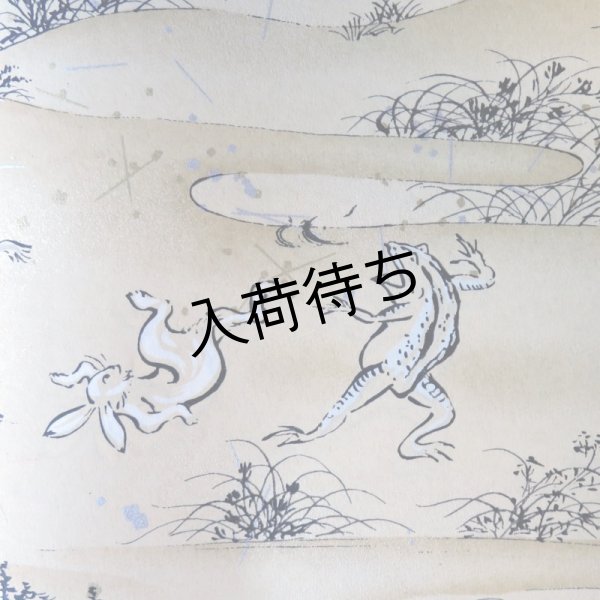 入荷待ち